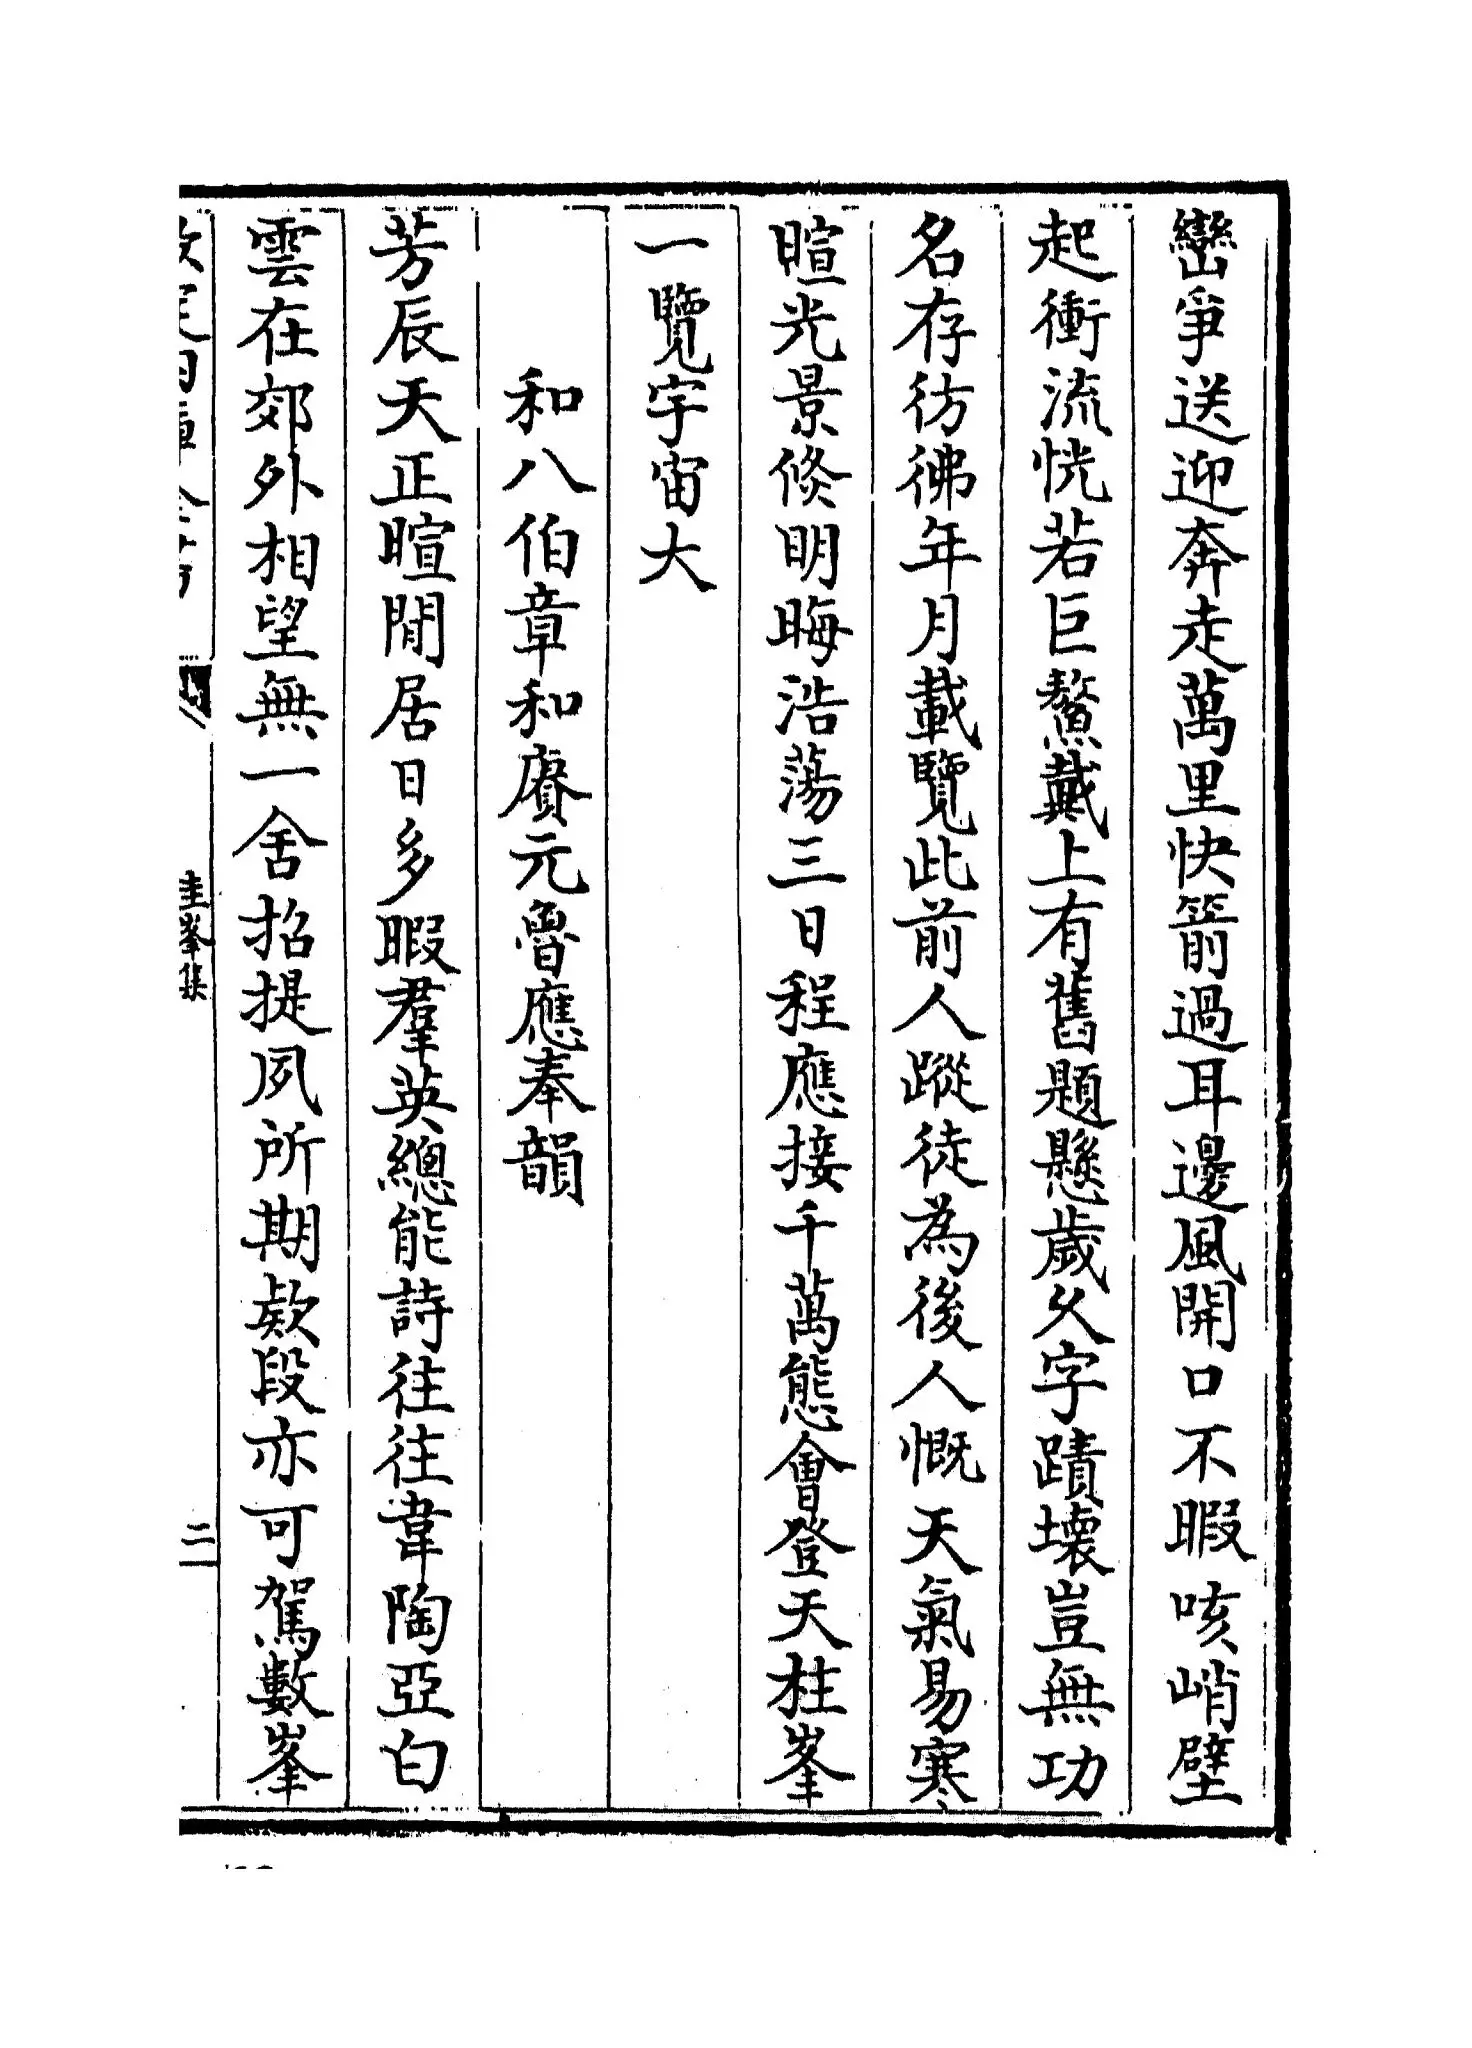 巒爭送迎奔走萬里快箭過耳邊風開口不暇咳峭壁
起衝流恍若巨鰲戴上有舊題懸歲久字蹟壞豈無功
名存彷彿年月載覽此前人蹤徒為後人慨天氣易寒
暄光景倐明晦浩蕩三日程應接千萬態會登天柱峯
一覽宇宙大
和八伯章和賡元魯應奉韻
芳辰天正暄閒居日多暇羣英總能詩往往韋陶亞白
雲在郊外相望無一舍招提夙所期欵段亦可駕數峯
欽定四庫全書
圭峯集
二